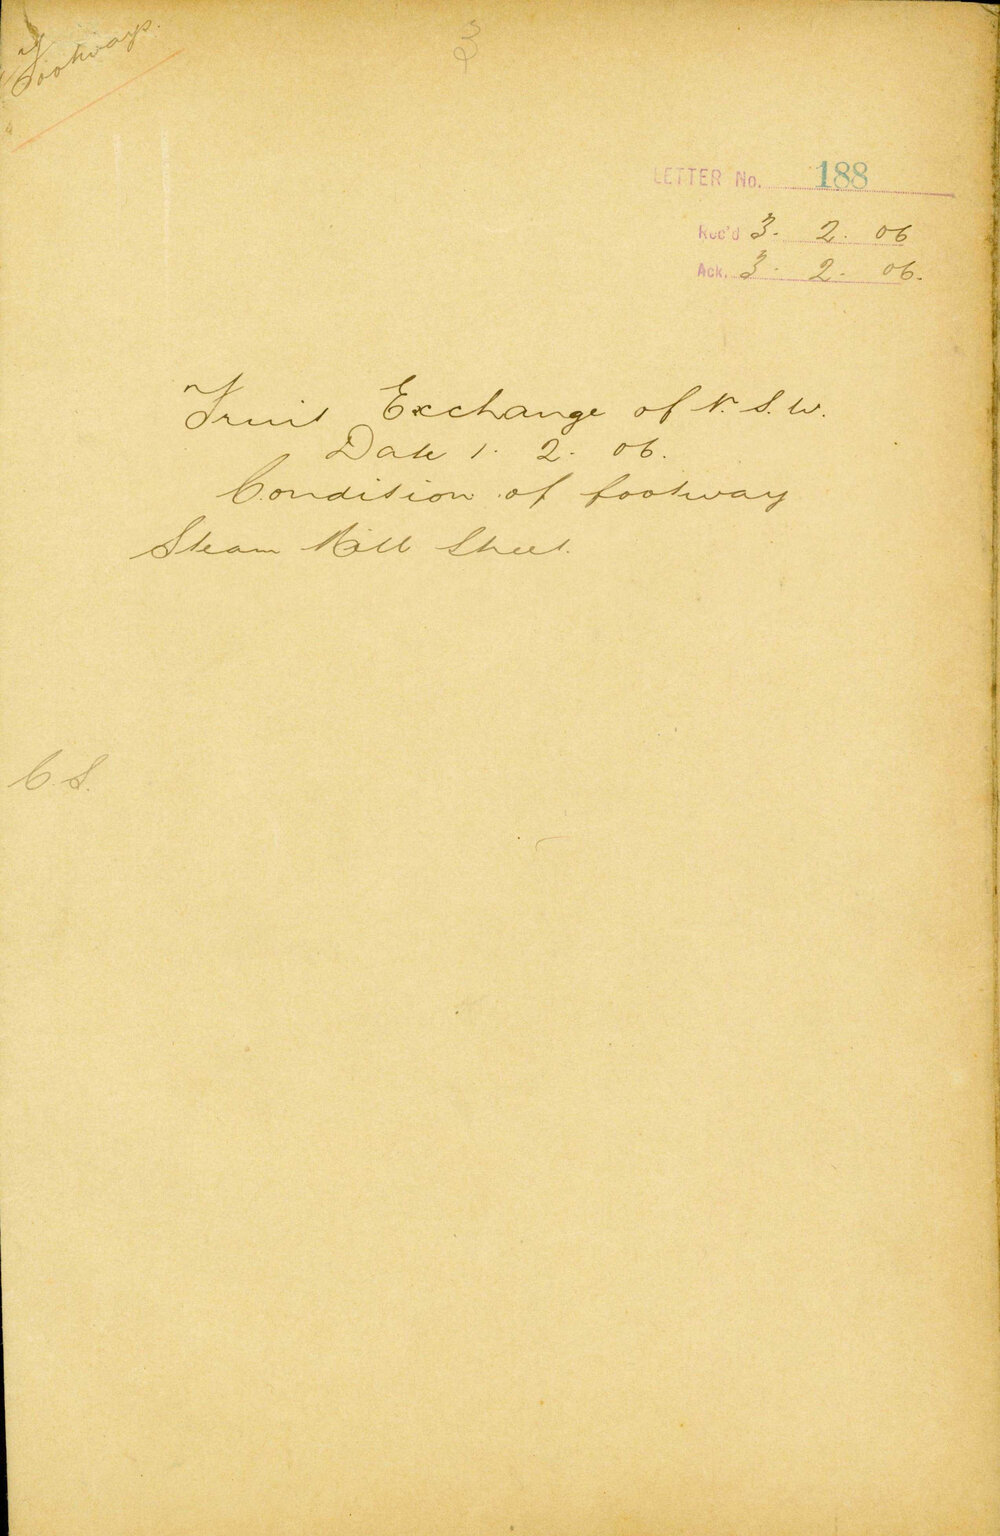 Footways.
3
LETTER No. 188
Rec'd 3. 2. 06
Ack. 3. 2. 06.
Fruit Exchange of N.S.W.
Date 1. 2. 06.
Condition of footway
Steam Mill Street.
C.S.